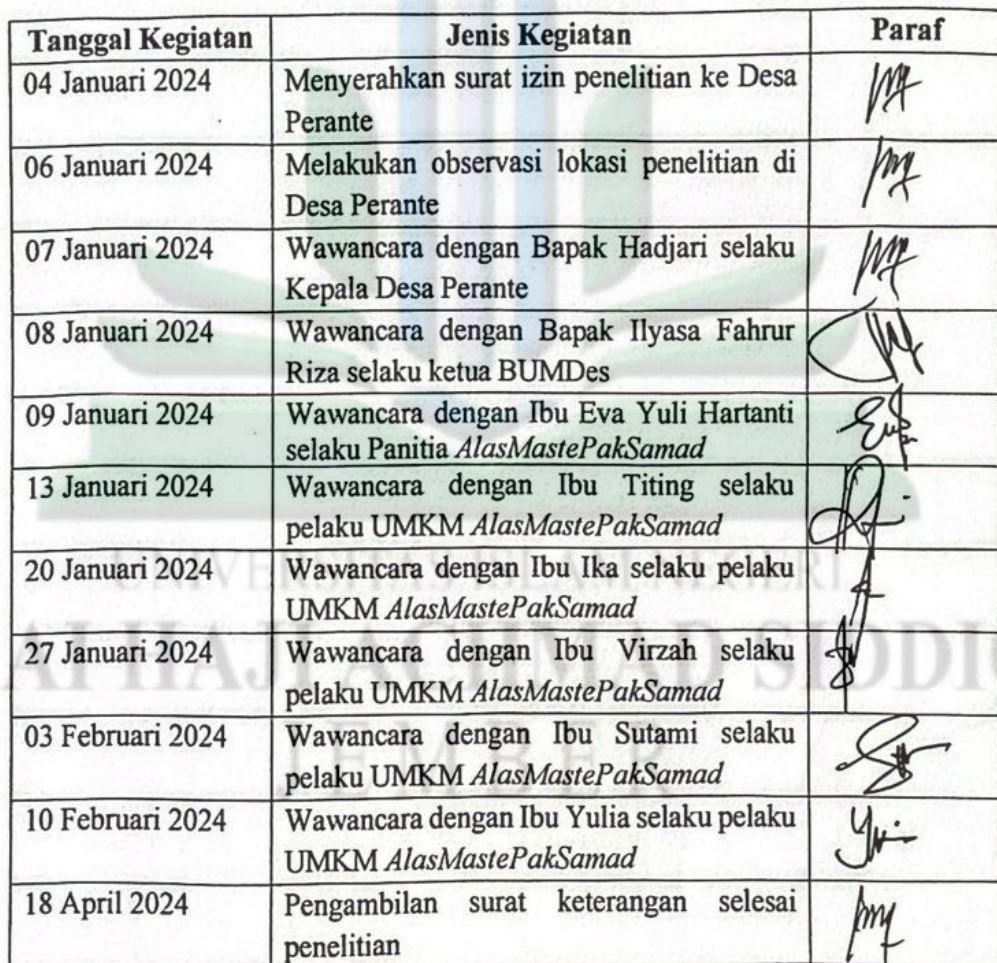 Tanggal Kegiatan Jenis Kegiatan Paraf
04 Januari 2024 Menyerahkan surat izin penelitian ke Desa
Perante
06 Januari 2024 Melakukan observasi lokasi penelitian di
Desa Perante
07 Januari 2024 Wawancara dengan Bapak Hadjari selaku
Kepala Desa Perante
08 Januari 2024 Wawancara dengan Bapak Ilyasa Fahrur
Riza selaku ketua BUMDes
09 Januari 2024 Wawancara dengan Ibu Eva Yuli Hartanti
selaku Panitia AlasMastePakSamad
13 Januari 2024 Wawancara dengan Ibu Titing selaku
pelaku UMKM AlasMastePakSamad
20 Januari 2024 Wawancara dengan Ibu Ika selaku pelaku
UMKM AlasMastePakSamad
27 Januari 2024 Wawancara dengan Ibu Virzah selaku
pelaku UMKM AlasMastePakSamad
03 Februari 2024 Wawancara dengan Ibu Sutami selaku
pelaku UMKM AlasMastePakSamad
10 Februari 2024 Wawancara dengan Ibu Yulia selaku pelaku
UMKM AlasMastePakSamad
18 April 2024 Pengambilan surat keterangan selesai
penelitian
UNIVERSITAS ISLAM NEGERI
AI HAJI ACHMAD SIDDIQ
JEMBER